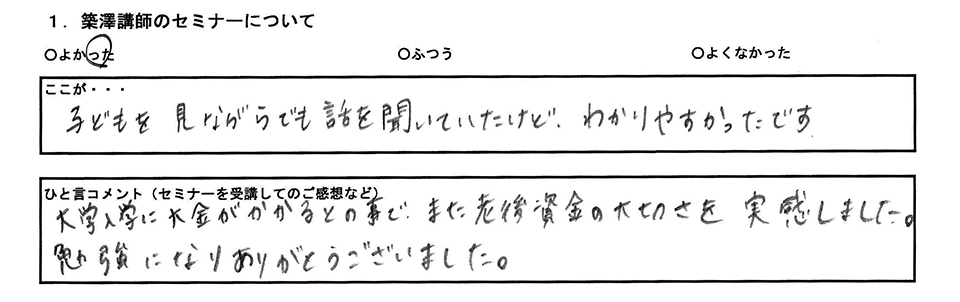 1．築澤講師のセミナーについて
○よかった ○ふつう ○よくなかった
ここが・・・
子どもを 見ながらでも 話を聞いていたけど、わかりやすかったです
ひと言コメント（セミナーを受講してのご感想など）
大学入学に大金がかかるとの事で、また老後資金の大切さを 実感しました。
勉強になりありがとうございました。